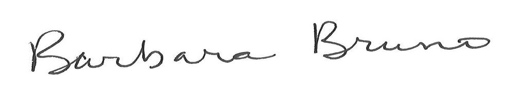 Barbara Bruno